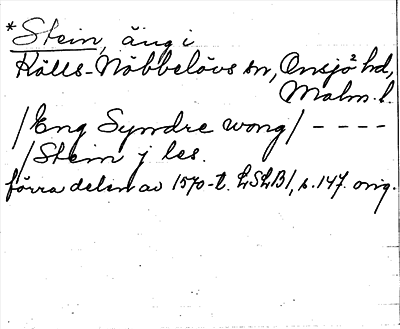 *Stein, äng i
Källs-Nöbbelövs sn, Onsjö hd,
Malm. l.
/Eng Syndre wong/ - - - -
/Stein j les.
förra delen av 1570-t. LSLB1, s. 147. orig.